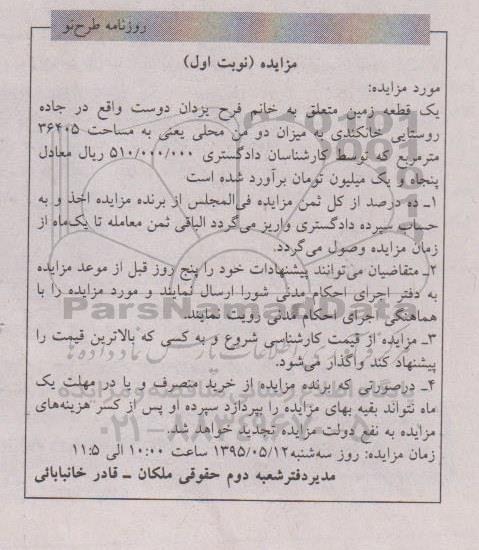 روزنامه طرح‌نو
مزایده (نوبت اول)
مورد مزایده:
یک قطعه زمین متعلق به خانم فرح یزدان دوست واقع در جاده
روستایی خانکندی به میزان دو من محلی یعنی به مساحت ۳۶۴۰۵
مترمربع که توسط کارشناسان دادگستری ۵۱۰/۰۰۰/۰۰۰ ریال معادل
پنجاه و یک میلیون تومان برآورد شده است
۱ـ ده درصد از کل ثمن مزایده فی‌المجلس از برنده مزایده اخذ و به
حساب سپرده دادگستری واریز می‌گردد الباقی ثمن معامله تا یک‌ماه از
زمان مزایده وصول می‌گردد.
۲ـ متقاضیان می‌توانند پیشنهادات خود را پنج روز قبل از موعد مزایده
به دفتر اجرای احکام مدنی شورا ارسال نمایند و مورد مزایده را با
هماهنگی اجرای احکام مدنی رویت نمایند.
ParsNamadData
۳ـ مزایده از قیمت کارشناسی شروع و به کسی که بالاترین قیمت را
پیشنهاد کند واگذار می‌شود.
۴ـ درصورتی که برنده مزایده از خرید منصرف و یا در مهلت یک
ماه نتواند بقیه بهای مزایده را بپردازد سپرده او پس از کسر هزینه‌های
مزایده به نفع دولت مزایده تجدید خواهد شد.
زمان مزایده: روز سه‌شنبه۱۳۹۵/۰۵/۱۲ ساعت ۱۰:۰۰ الی ۱۱:۵
مدیردفترشعبه دوم حقوقی ملکان ـ قادر خانبابائی